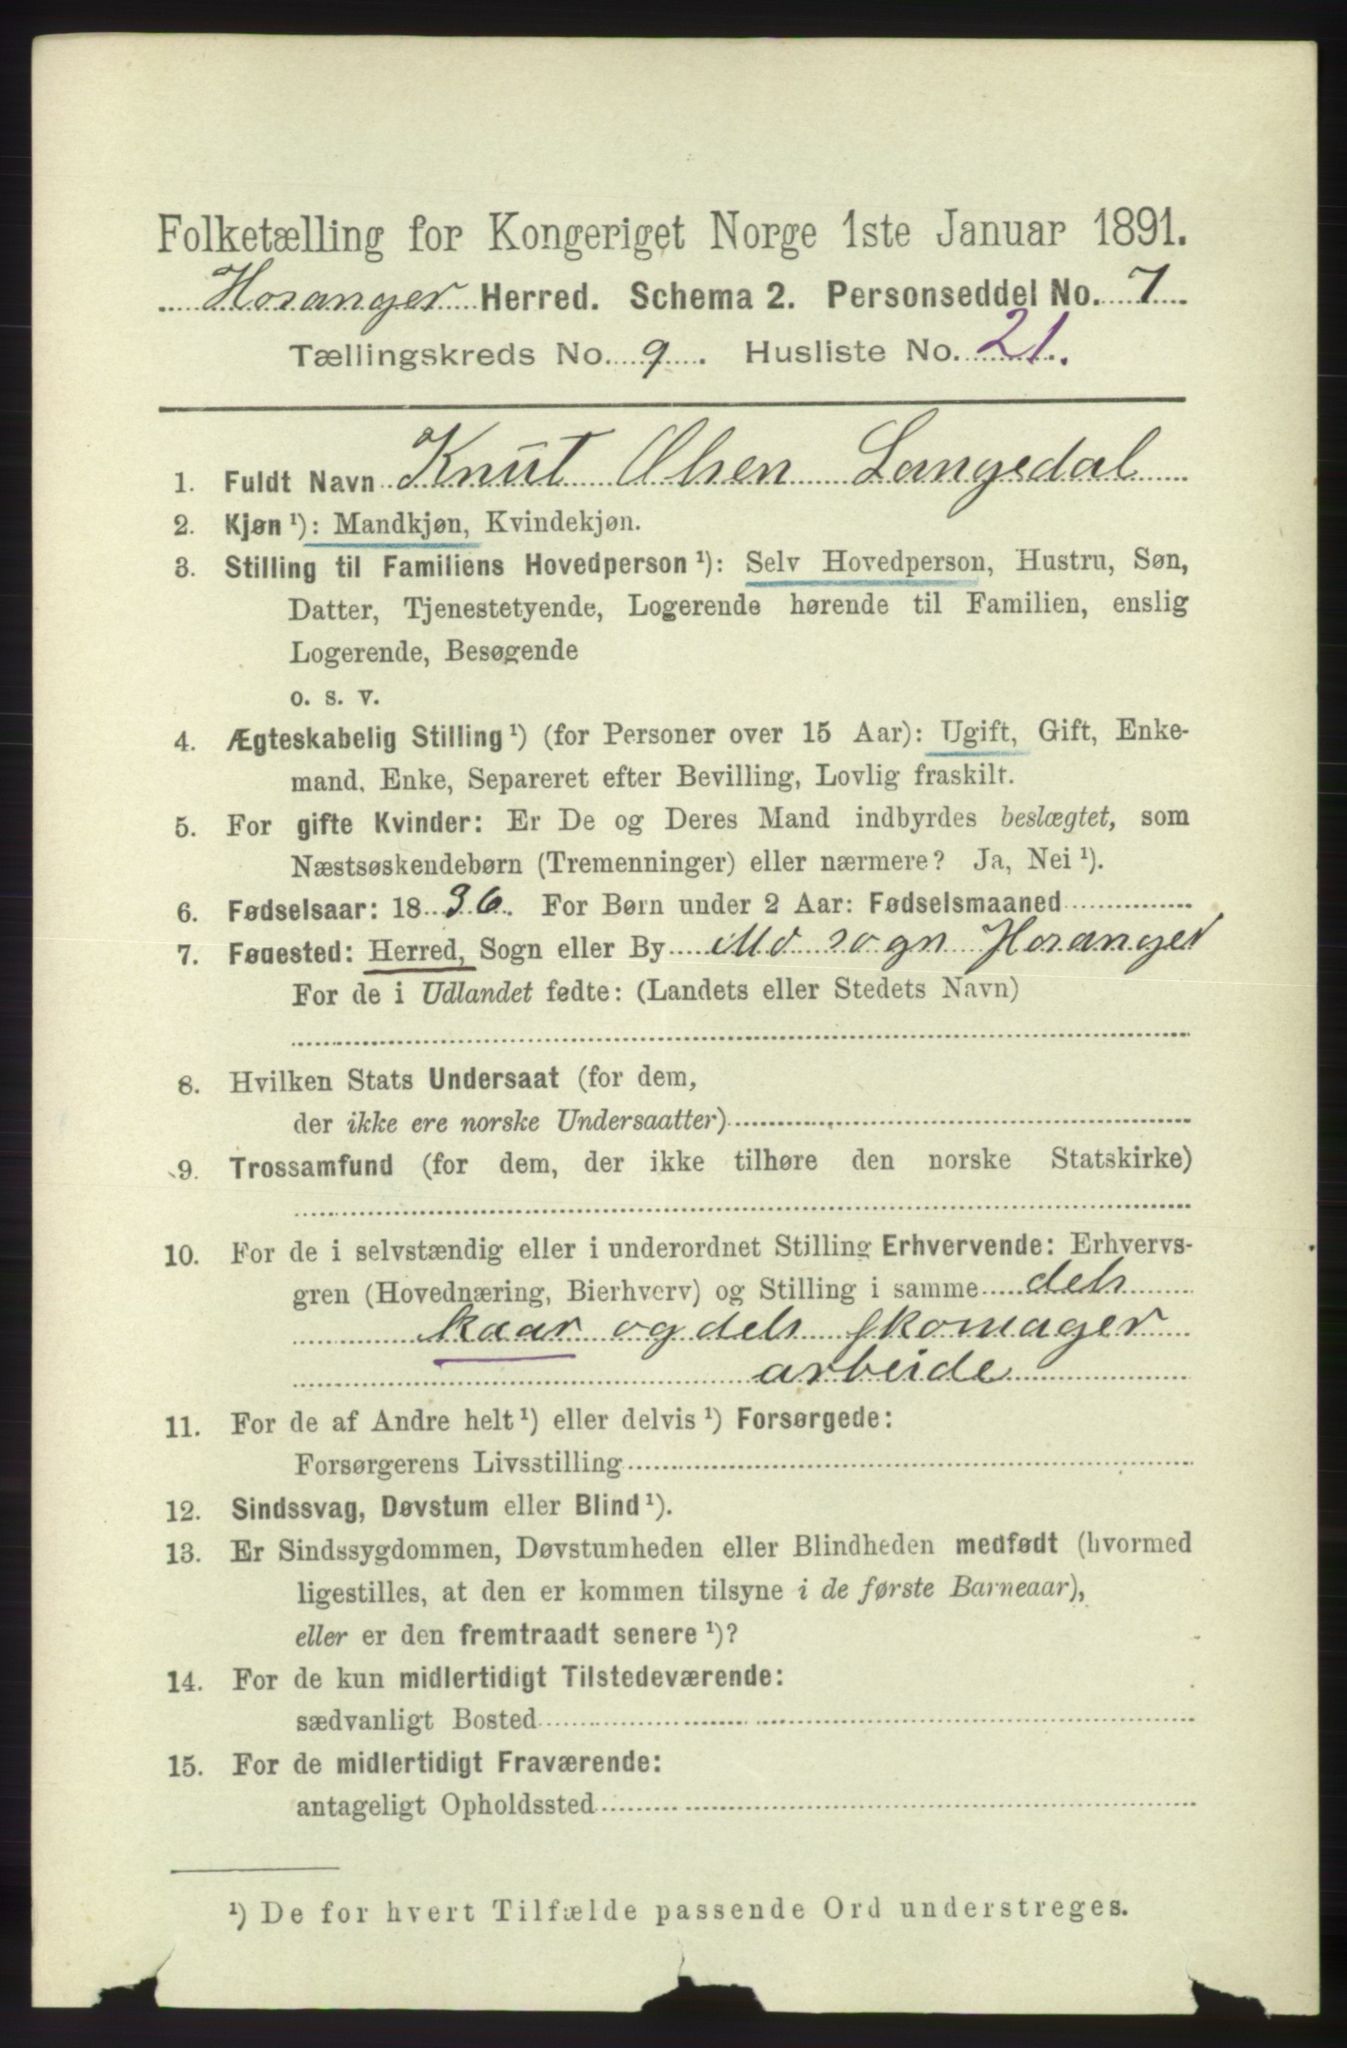 Folketælling for Kongeriget Norge 1ste Januar 1891.
Hosanger Herred. Schema 2. Personseddel No. 7
Tællingskreds No. 9. Husliste No. 21.
1. Fuldt Navn Knut Olsen Langedal
2. Kjøn ¹): Mandkjøn, Kvindekjøn.
3. Stilling til Familiens Hovedperson ¹): Selv Hovedperson, Hustru, Søn,
Datter, Tjenestetyende, Logerende hørende til Familien, enslig
Logerende, Besøgende
o. s. v.
4. Ægteskabelig Stilling ¹) (for Personer over 15 Aar): Ugift, Gift, Enke-
mand, Enke, Separeret efter Bevilling, Lovlig fraskilt.
5. For gifte Kvinder: Er De og Deres Mand indbyrdes beslægtet, som
Næstsøskendebørn (Tremenninger) eller nærmere? Ja, Nei ¹).
6. Fødselsaar: 1836. For Børn under 2 Aar: Fødselsmaaned
7. Fødested: Herred, Sogn eller By Mo sogn Hosanger
For de i Udlandet fødte: (Landets eller Stedets Navn)
8. Hvilken Stats Undersaat (for dem,
der ikke ere norske Undersaatter)
9. Trossamfund (for dem, der ikke tilhøre den norske Statskirke)
10. For de i selvstændig eller i underordnet Stilling Erhvervende: Erhvervs-
gren (Hovednæring, Bierhverv) og Stilling i samme dels
kaar og dels skomager
arbeide
11. For de af Andre helt ¹) eller delvis ¹) Forsørgede:
Forsørgerens Livsstilling
12. Sindssvag, Døvstum eller Blind ¹).
13. Er Sindssygdommen, Døvstumheden eller Blindheden medfødt (hvormed
ligestilles, at den er kommen tilsyne i de første Barneaar),
eller er den fremtraadt senere ¹)?
14. For de kun midlertidigt Tilstedeværende:
sædvanligt Bosted
15. For de midlertidigt Fraværende:
antageligt Opholdssted
¹) De for hvert Tilfælde passende Ord understreges.